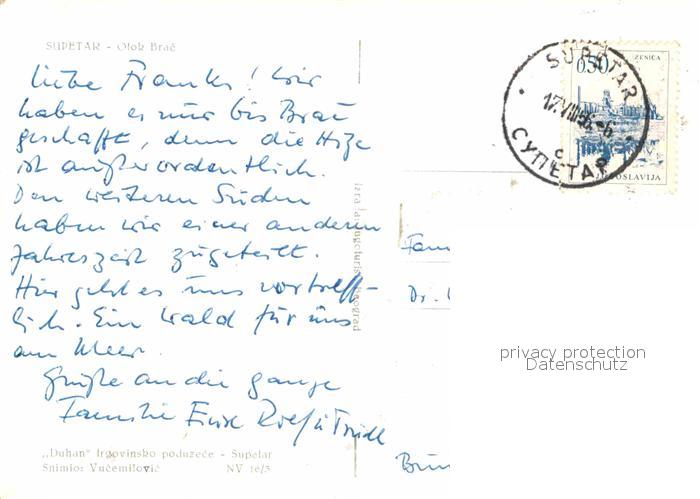 SUPETAR - Otok Brač
Liebe Franks! Wir
haben es nur bis Brač
geschafft, denn die Hitze
ist außerordentlich.
Den weiteren Süden
haben wir einer anderen
Jahreszeit zugeteilt.
Hier geht es uns vortreff-
lich. Ein Wald für uns
am Meer.
Grüße an die ganze
Familie Eure
„Duhan" trgovinsko poduzeće - Supetar
Snimio: Vučemilović NV 16/3
Beograd
SUPETAR
СУПЕТАР
0,50
ZENICA
JUGOSLAVIJA
Fam
Dr.
privacy protection
Datenschutz